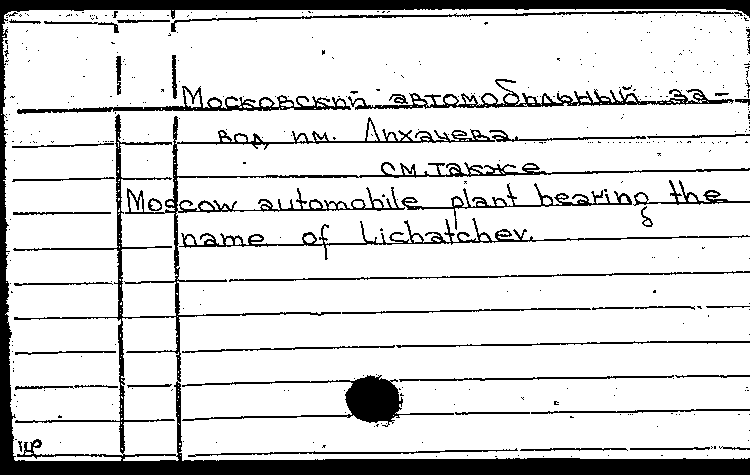 Московский автомобильный за-
вод им. Лихачева.
см.также
Moscow automobile plant bearing the
name of Lichatchev.